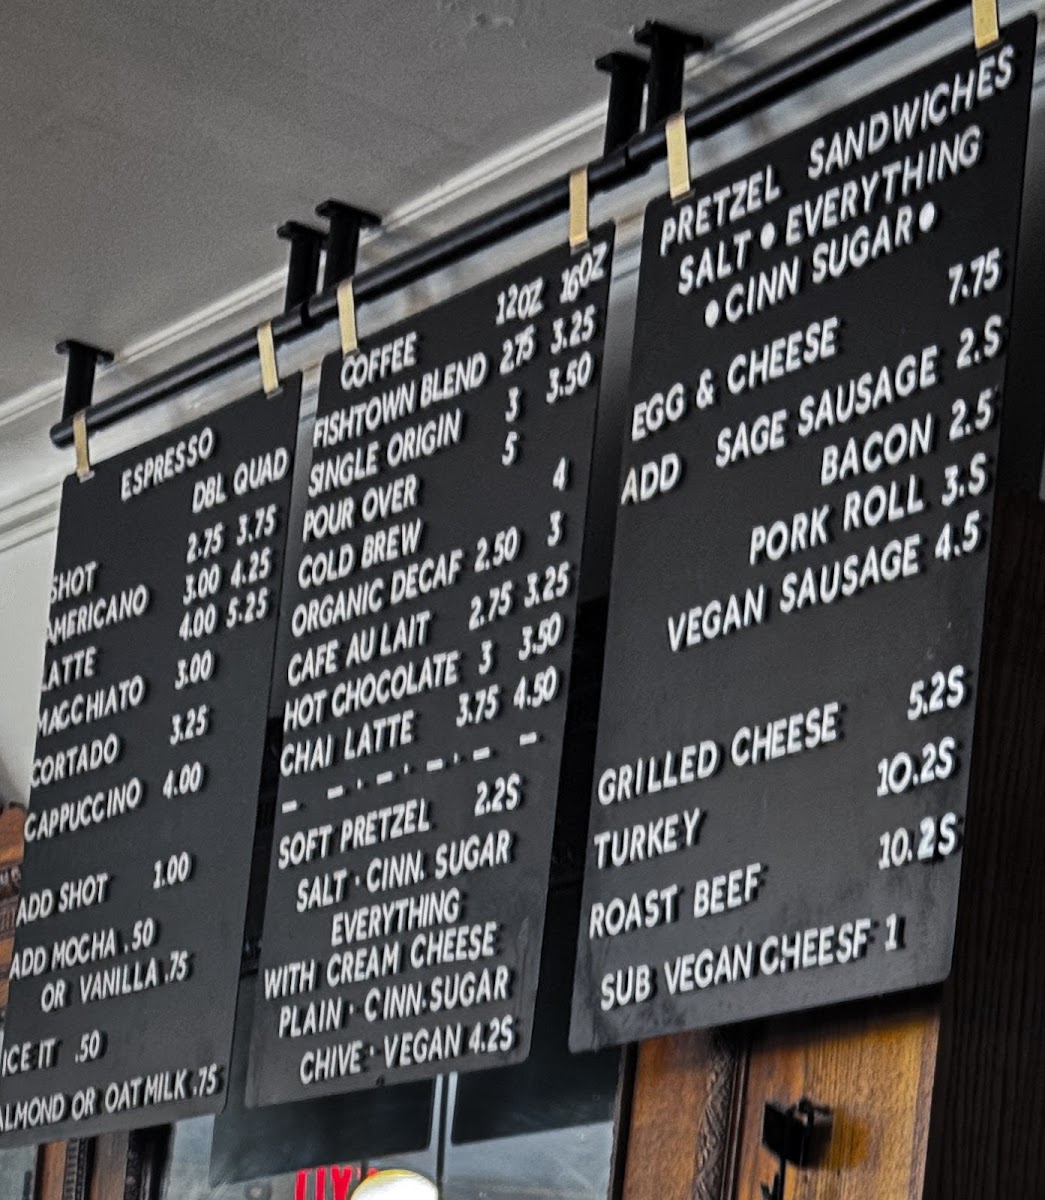 ESPRESSO
DBL QUAD
SHOT 2.75 3.75
AMERICANO 3.00 4.25
LATTE 4.00 5.25
MACCHIATO 3.00
CORTADO 3.25
CAPPUCCINO 4.00
ADD SHOT 1.00
ADD MOCHA .50
OR VANILLA .75
ICE IT .50
ALMOND OR OAT MILK .75
COFFEE 12OZ 16OZ
FISHTOWN BLEND 2.75 3.25
SINGLE ORIGIN 3 3.50
POUR OVER 5
COLD BREW 4
ORGANIC DECAF 2.50 3
CAFE AU LAIT 2.75 3.25
HOT CHOCOLATE 3 3.50
CHAI LATTE 3.75 4.50
- - · - · - · - -
SOFT PRETZEL 2.2S
SALT · CINN. SUGAR
EVERYTHING
WITH CREAM CHEESE
PLAIN · CINN.SUGAR
CHIVE · VEGAN 4.2S
PRETZEL SANDWICHES
SALT • EVERYTHING
• CINN SUGAR •
EGG & CHEESE 7.75
ADD SAGE SAUSAGE 2.S
BACON 2.5
PORK ROLL 3.S
VEGAN SAUSAGE 4.5
GRILLED CHEESE 5.2S
TURKEY 10.2S
ROAST BEEF 10.2S
SUB VEGAN CHEESF 1